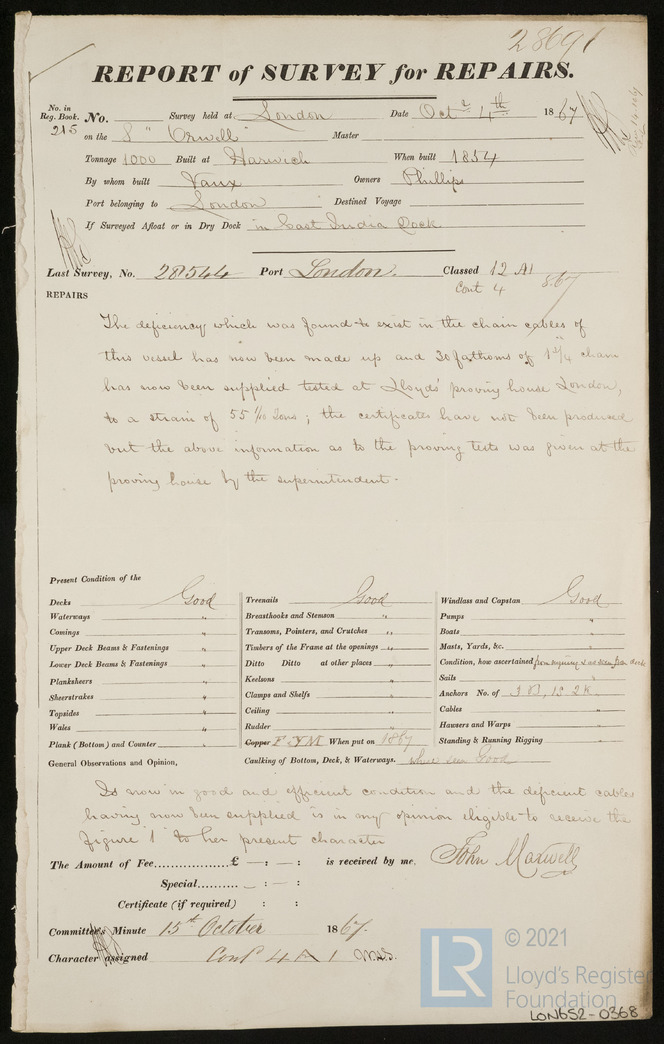 28691
REPORT of SURVEY for REPAIRS.
No. in Reg. Book. No. Survey held at London Date Oct 4th 1867
215 on the S "Orwell" Master
Tonnage 1000 Built at Harwich When built 1854
By whom built Vaux Owners Phillips
Port belonging to London Destined Voyage
If Surveyed Afloat or in Dry Dock in East India Dock
Last Survey, No. 28544 Port London. Classed 12 A1
Cont 4 8.67
REPAIRS
The deficiency which was found to exist in the chain cables of
this vessel has now been made up and 30 fathoms of 1 3/4 chain
has now been supplied tested at Lloyds' proving house London,
to a strain of 55 1/10 Tons; the certificates have not been produced
but the above information as to the proving tests was given at the
proving house by the superintendent.
Present Condition of the
Decks Good Treenails Good Windlass and Capstan Good
Waterways " Breasthooks and Stemson " Pumps "
Comings " Transoms, Pointers, and Crutches " Boats "
Upper Deck Beams & Fastenings " Timbers of the Frame at the openings " Masts, Yards, &c. "
Lower Deck Beams & Fastenings " Ditto Ditto at other places " Condition, how ascertained from dock
Planksheers " Keelsons " Sails "
Sheerstrakes " Clamps and Shelfs " Anchors No. of 3 B, 1 S 2 K
Topsides " Ceiling " Cables "
Wales " Rudder " Hawsers and Warps "
Plank (Bottom) and Counter " Copper F YM When put on 1867 Standing & Running Rigging "
General Observations and Opinion, Caulking of Bottom, Deck, & Waterways. where seen Good
Is now in good and efficient condition and the deficient cables
having now been supplied is in my opinion eligible to receive the
figure '1' to her present character
The Amount of Fee.................£ — : — : is received by me, John Maxwell
Special.......... — : — :
Certificate (if required) : :
Committee's Minute 15th October 1867.
Character assigned Contd 4 A 1
LR
© 2021
Lloyd's Register
Foundation
LON652-0368